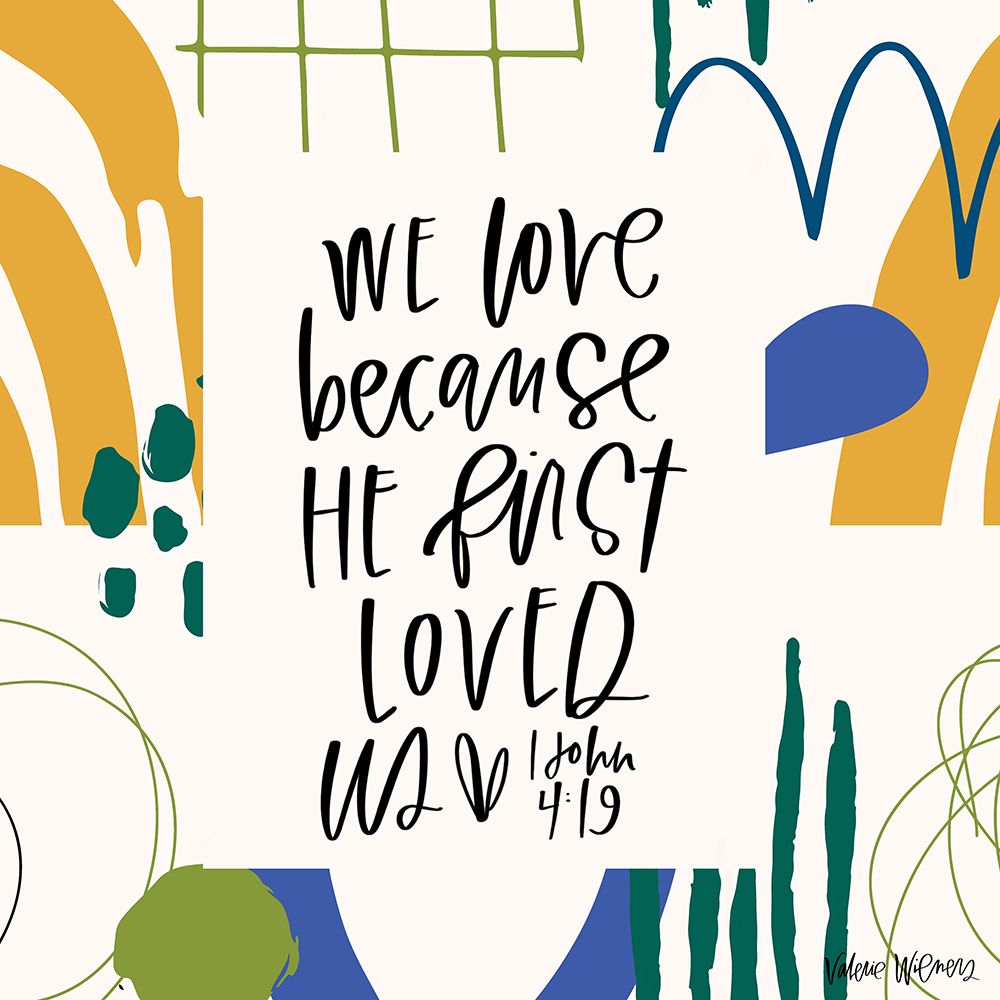 WE love
because
HE first
LOVED
us 1 John
4:19
Valerie Wieners